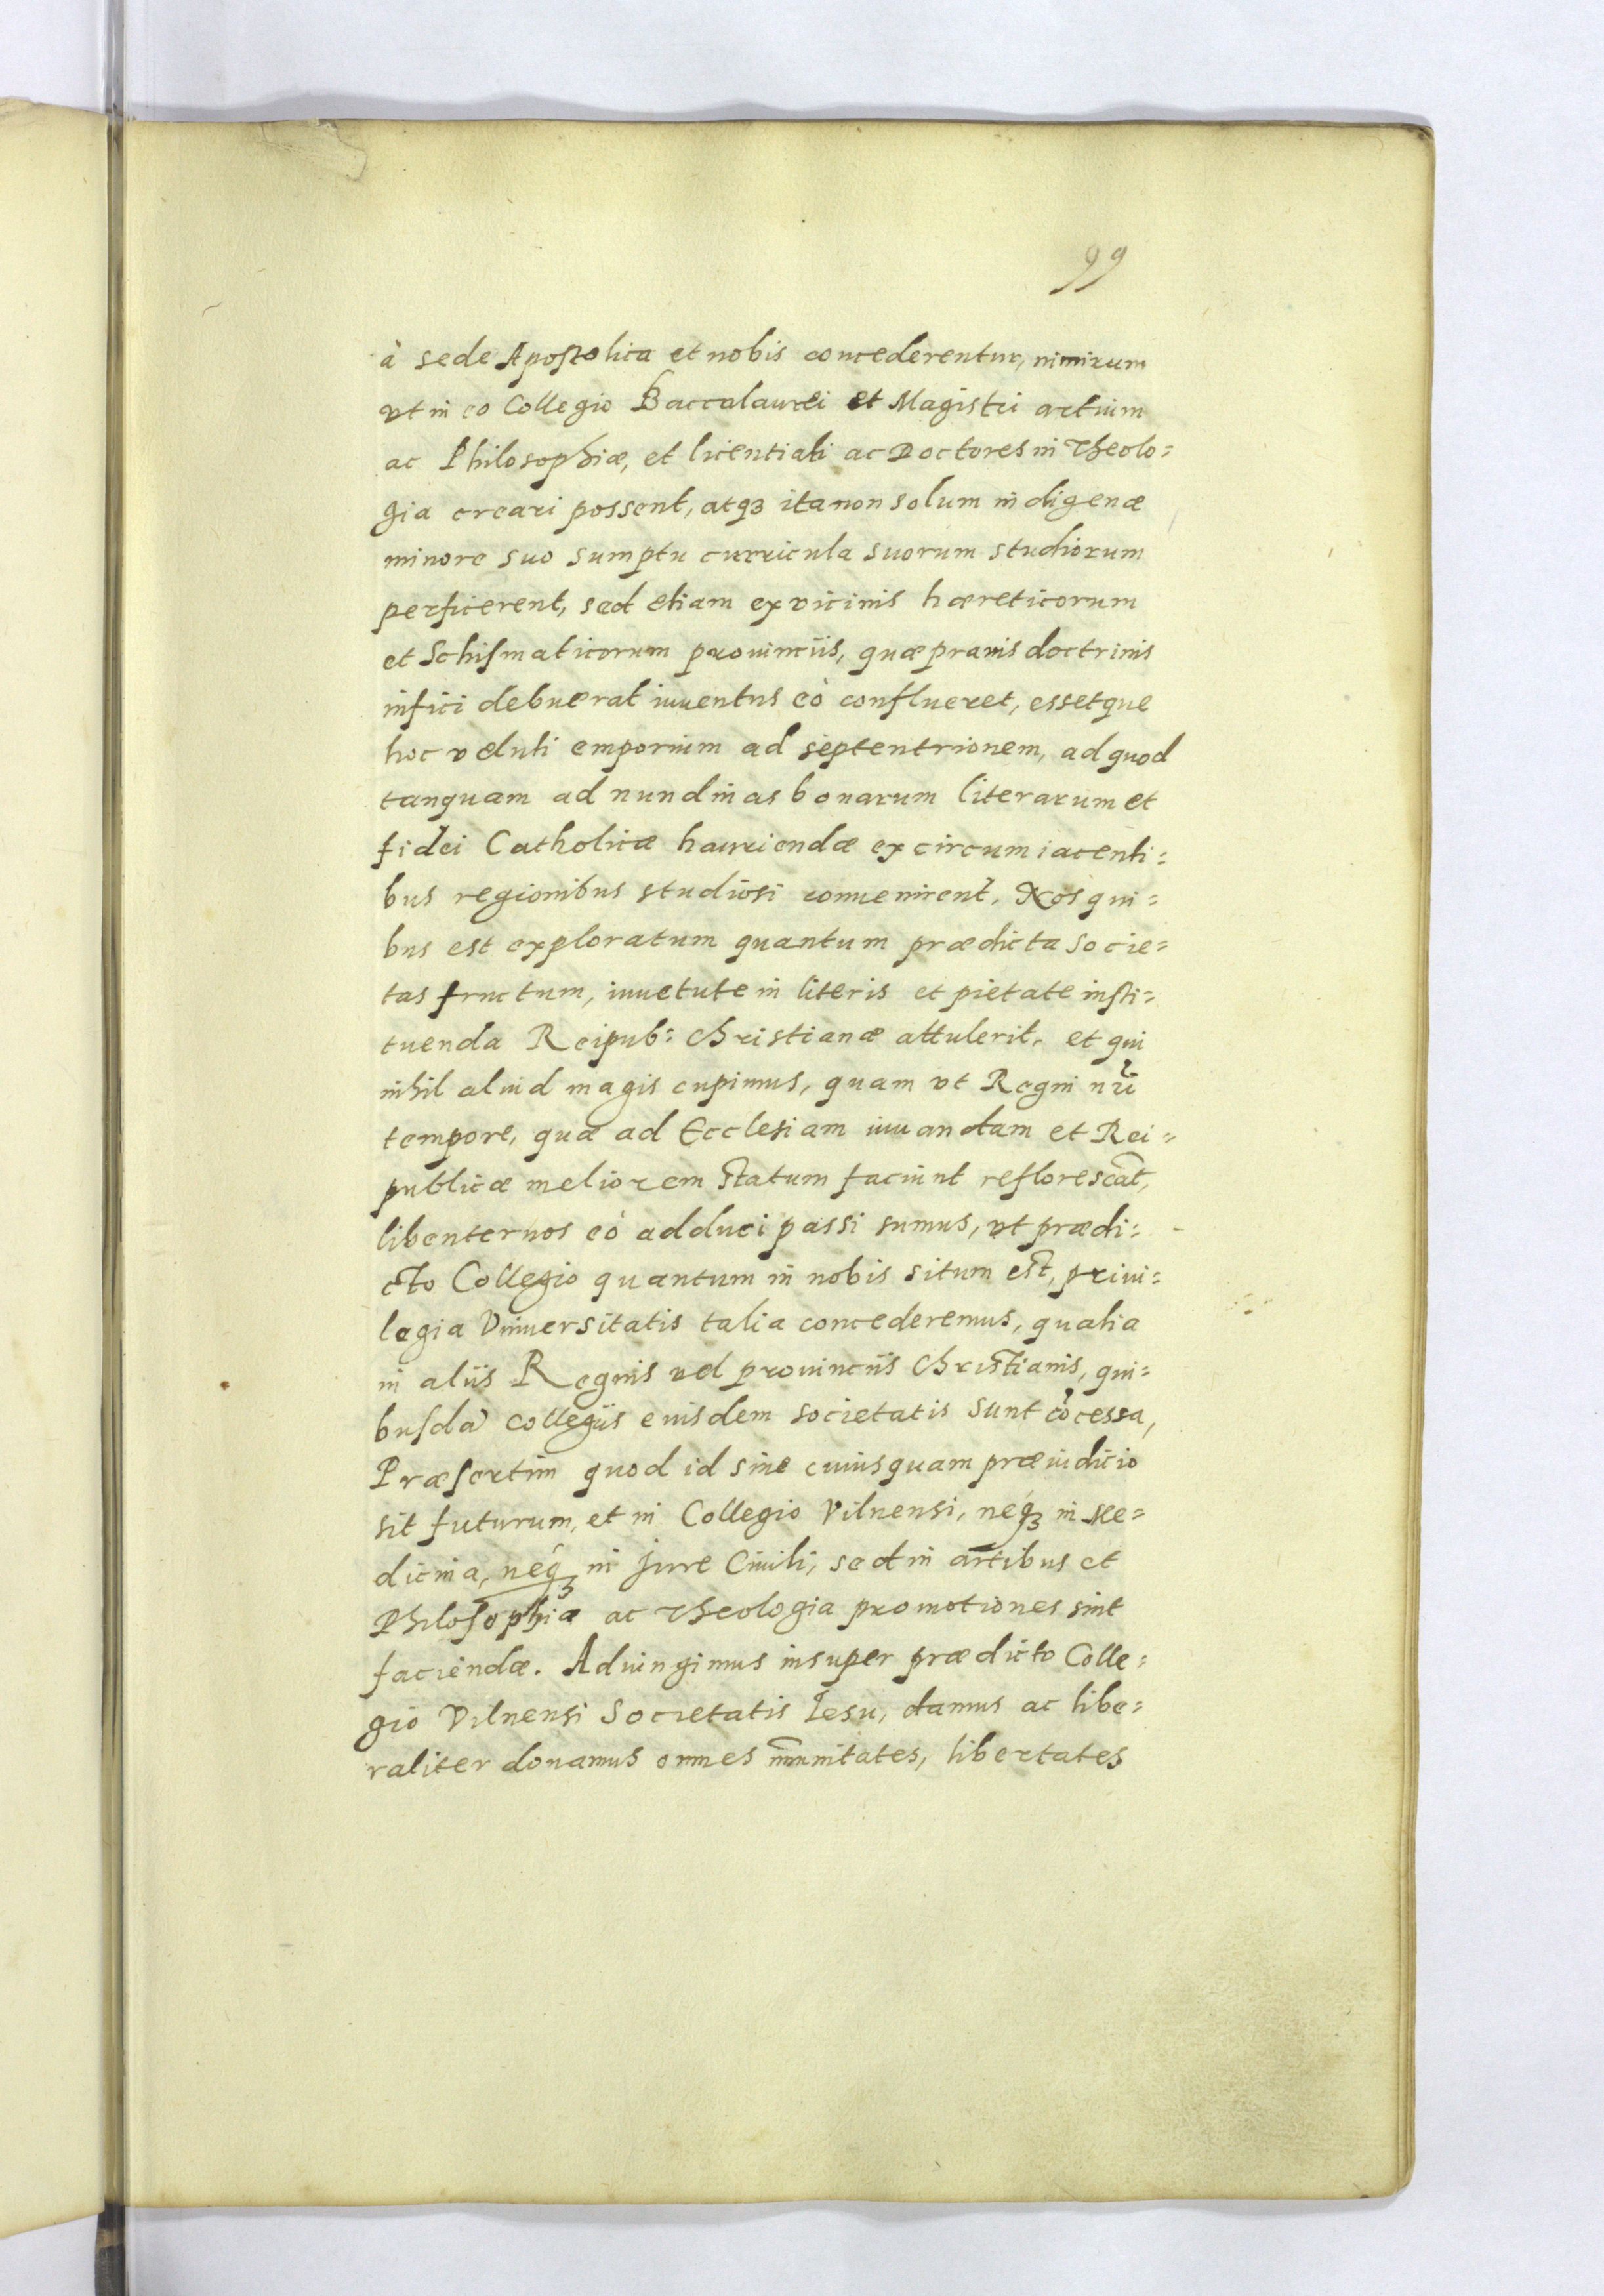 99
à sede Apostolica et nobis concederentur, nimirum
vt in eo Collegio Baccalaurei et Magistri artium
ac Philosophiæ, et licentiati ac Doctores in Theolo=
gia creari possent, atqȝ ita non solum indigenæ
minore suo sumptu curricula suorum studiorum
perficerent, sed etiam ex vicinis hæreticorum
et Schismaticorum prouincijs, quæ prauis doctrinis
infici debuerat iuuentus eò conflueret, essetque
hoc veluti emporium ad septentrionem, ad quod
tanquam ad nundinas bonarum literarum et
fidei Catholicæ hauriendæ ex circumiacenti=
bus regionibus studiosi conuenirent. Nos qui=
bus est exploratum quantum prædicta Socie=
tas fructum, iuuetute in literis et pietate insti=
tuenda Reipub: Christianæ attulerit, et qui
nihil aliud magis cupimus, quam vt Regni nr̃i
tempore, quæ ad Ecclesiam iuuandam et Rei=
publicæ meliorem statum faciunt reflorescãt,
libenter nos eò adduci passi sumus, vt prædi=
cto Collegio quantum in nobis situm est, priui=
legia Vniuersitatis talia concederemus, qualia
in alijs Regnis vel prouincijs Christianis, qui=
busdã collegijs eiusdem societatis sunt cõcessa,
Præsertim quod id sine cuiusquam præiudicio
sit futurum, et in Collegio Vilnensi, neqȝ in Me=
dicina, neqȝ in Jure Ciuili, sed in artibus et
Philosophia ac Theologia promotiones sint
faciendæ. Adiungimus insuper prædicto Colle=
gio Vilnensi Societatis Iesu, damus ac libe=
raliter donamus omnes im̃unitates, libertates